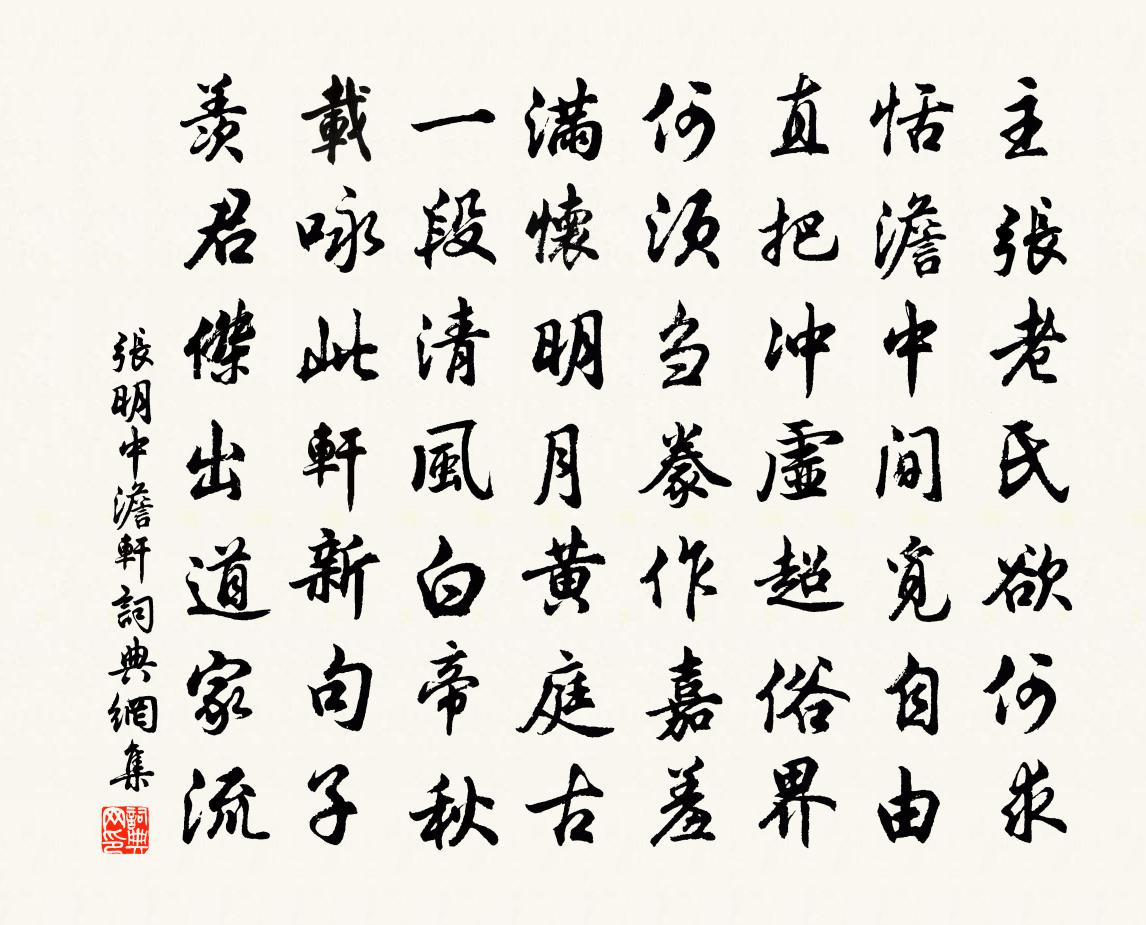 主張老氏欲何求
恬澹中間覓自由
直把沖虛超俗界
何須芻豢作嘉羞
滿懷明月黃庭古
一段清風白帝秋
載咏此軒新句子
羨君傑出道家流
張明中澹軒詞典網集
詞典網印